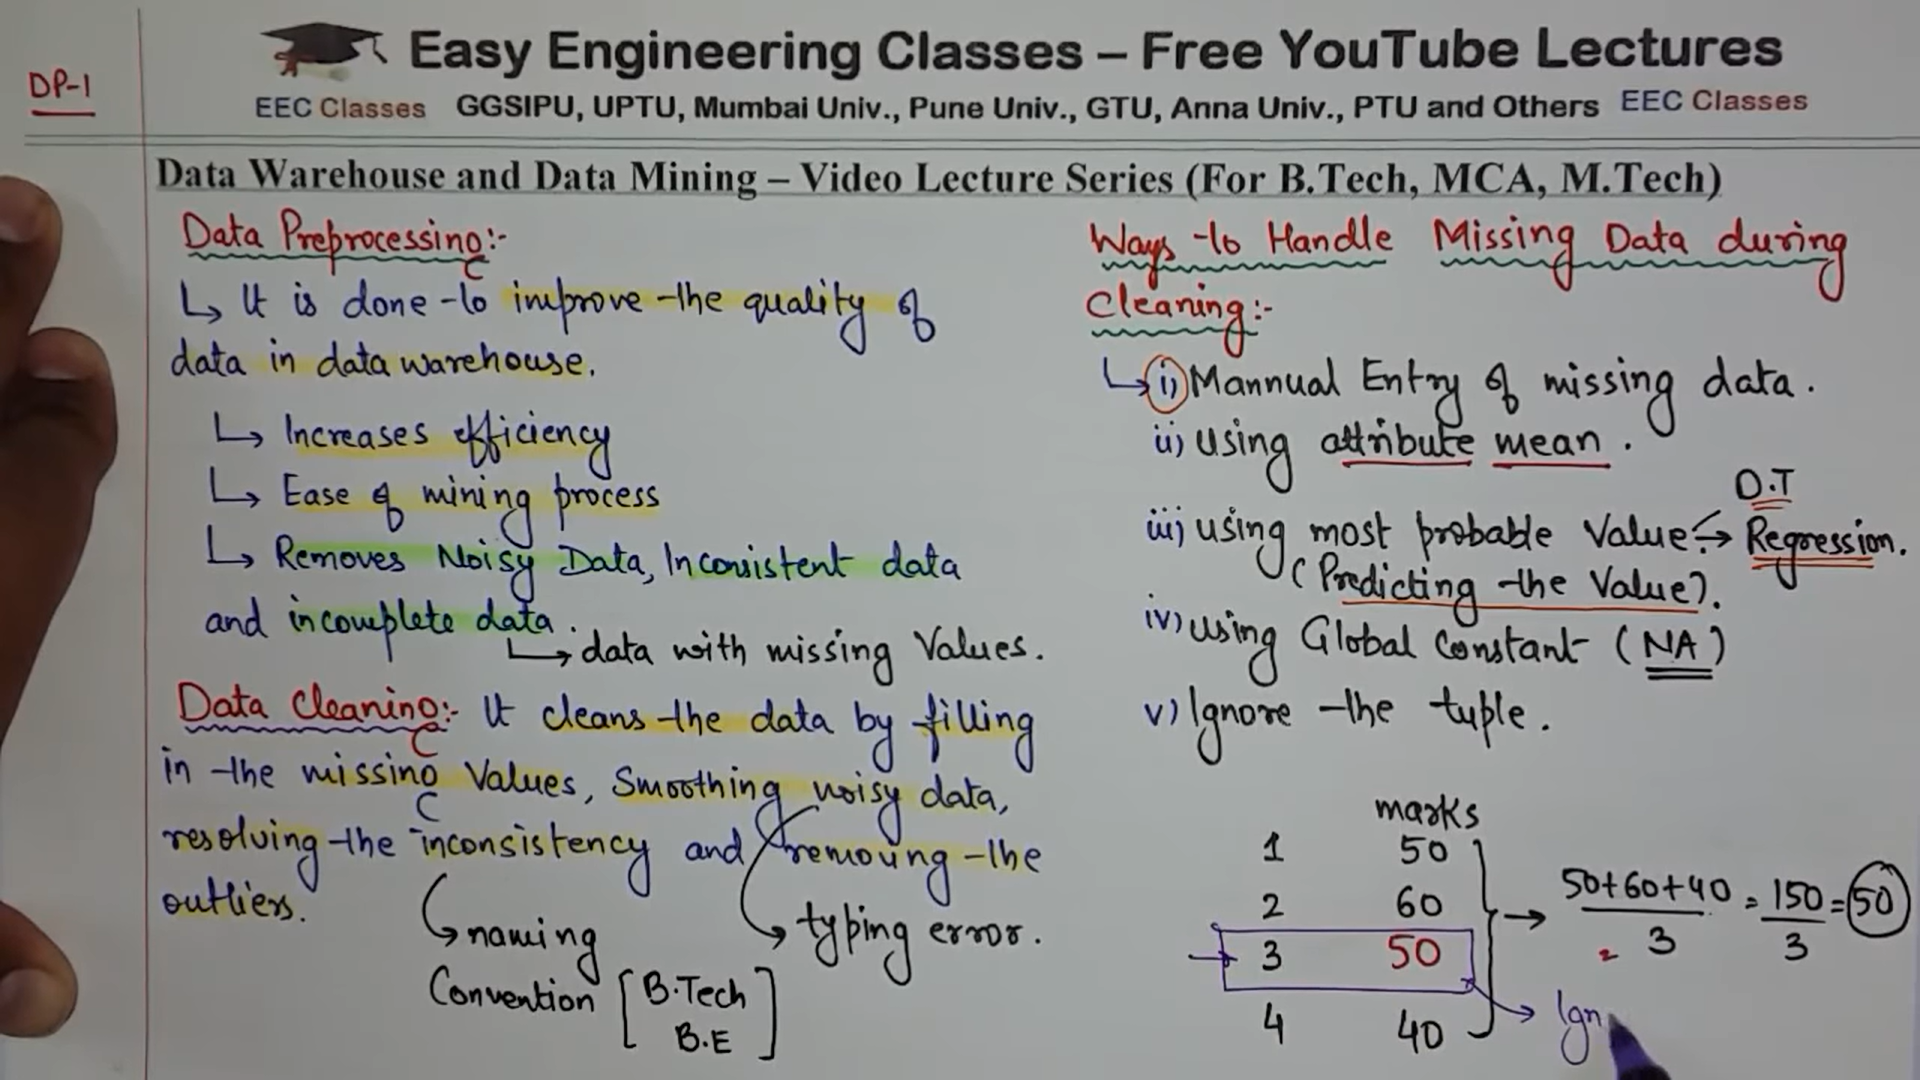 DP-1
Easy Engineering Classes – Free YouTube Lectures
EEC Classes GGSIPU, UPTU, Mumbai Univ., Pune Univ., GTU, Anna Univ., PTU and Others EEC Classes
Data Warehouse and Data Mining – Video Lecture Series (For B.Tech, MCA, M.Tech)
Data Preprocessing:-
↳ It is done to improve the quality of
data in data warehouse.
↳ Increases efficiency
↳ Ease of mining process
↳ Removes Noisy Data, Inconsistent data
and incomplete data.
↳ data with missing Values.
Data Cleaning:- It cleans the data by filling
in the missing Values, Smoothing noisy data,
resolving the inconsistency and removing the
outliers.
naming
Convention [B.Tech
B.E]
typing error.
Ways to Handle Missing Data during
Cleaning:-
↳ i) Mannual Entry of missing data.
ii) Using attribute mean.
D.T
iii) Using most probable Value: → Regression.
(Predicting the Value).
iv) Using Global Constant (NA)
v) Ignore the tuple.
marks
1 50
2 60
3 50
4 40
→ 50+60+40 = 150 = 50
3 3
→ Ign